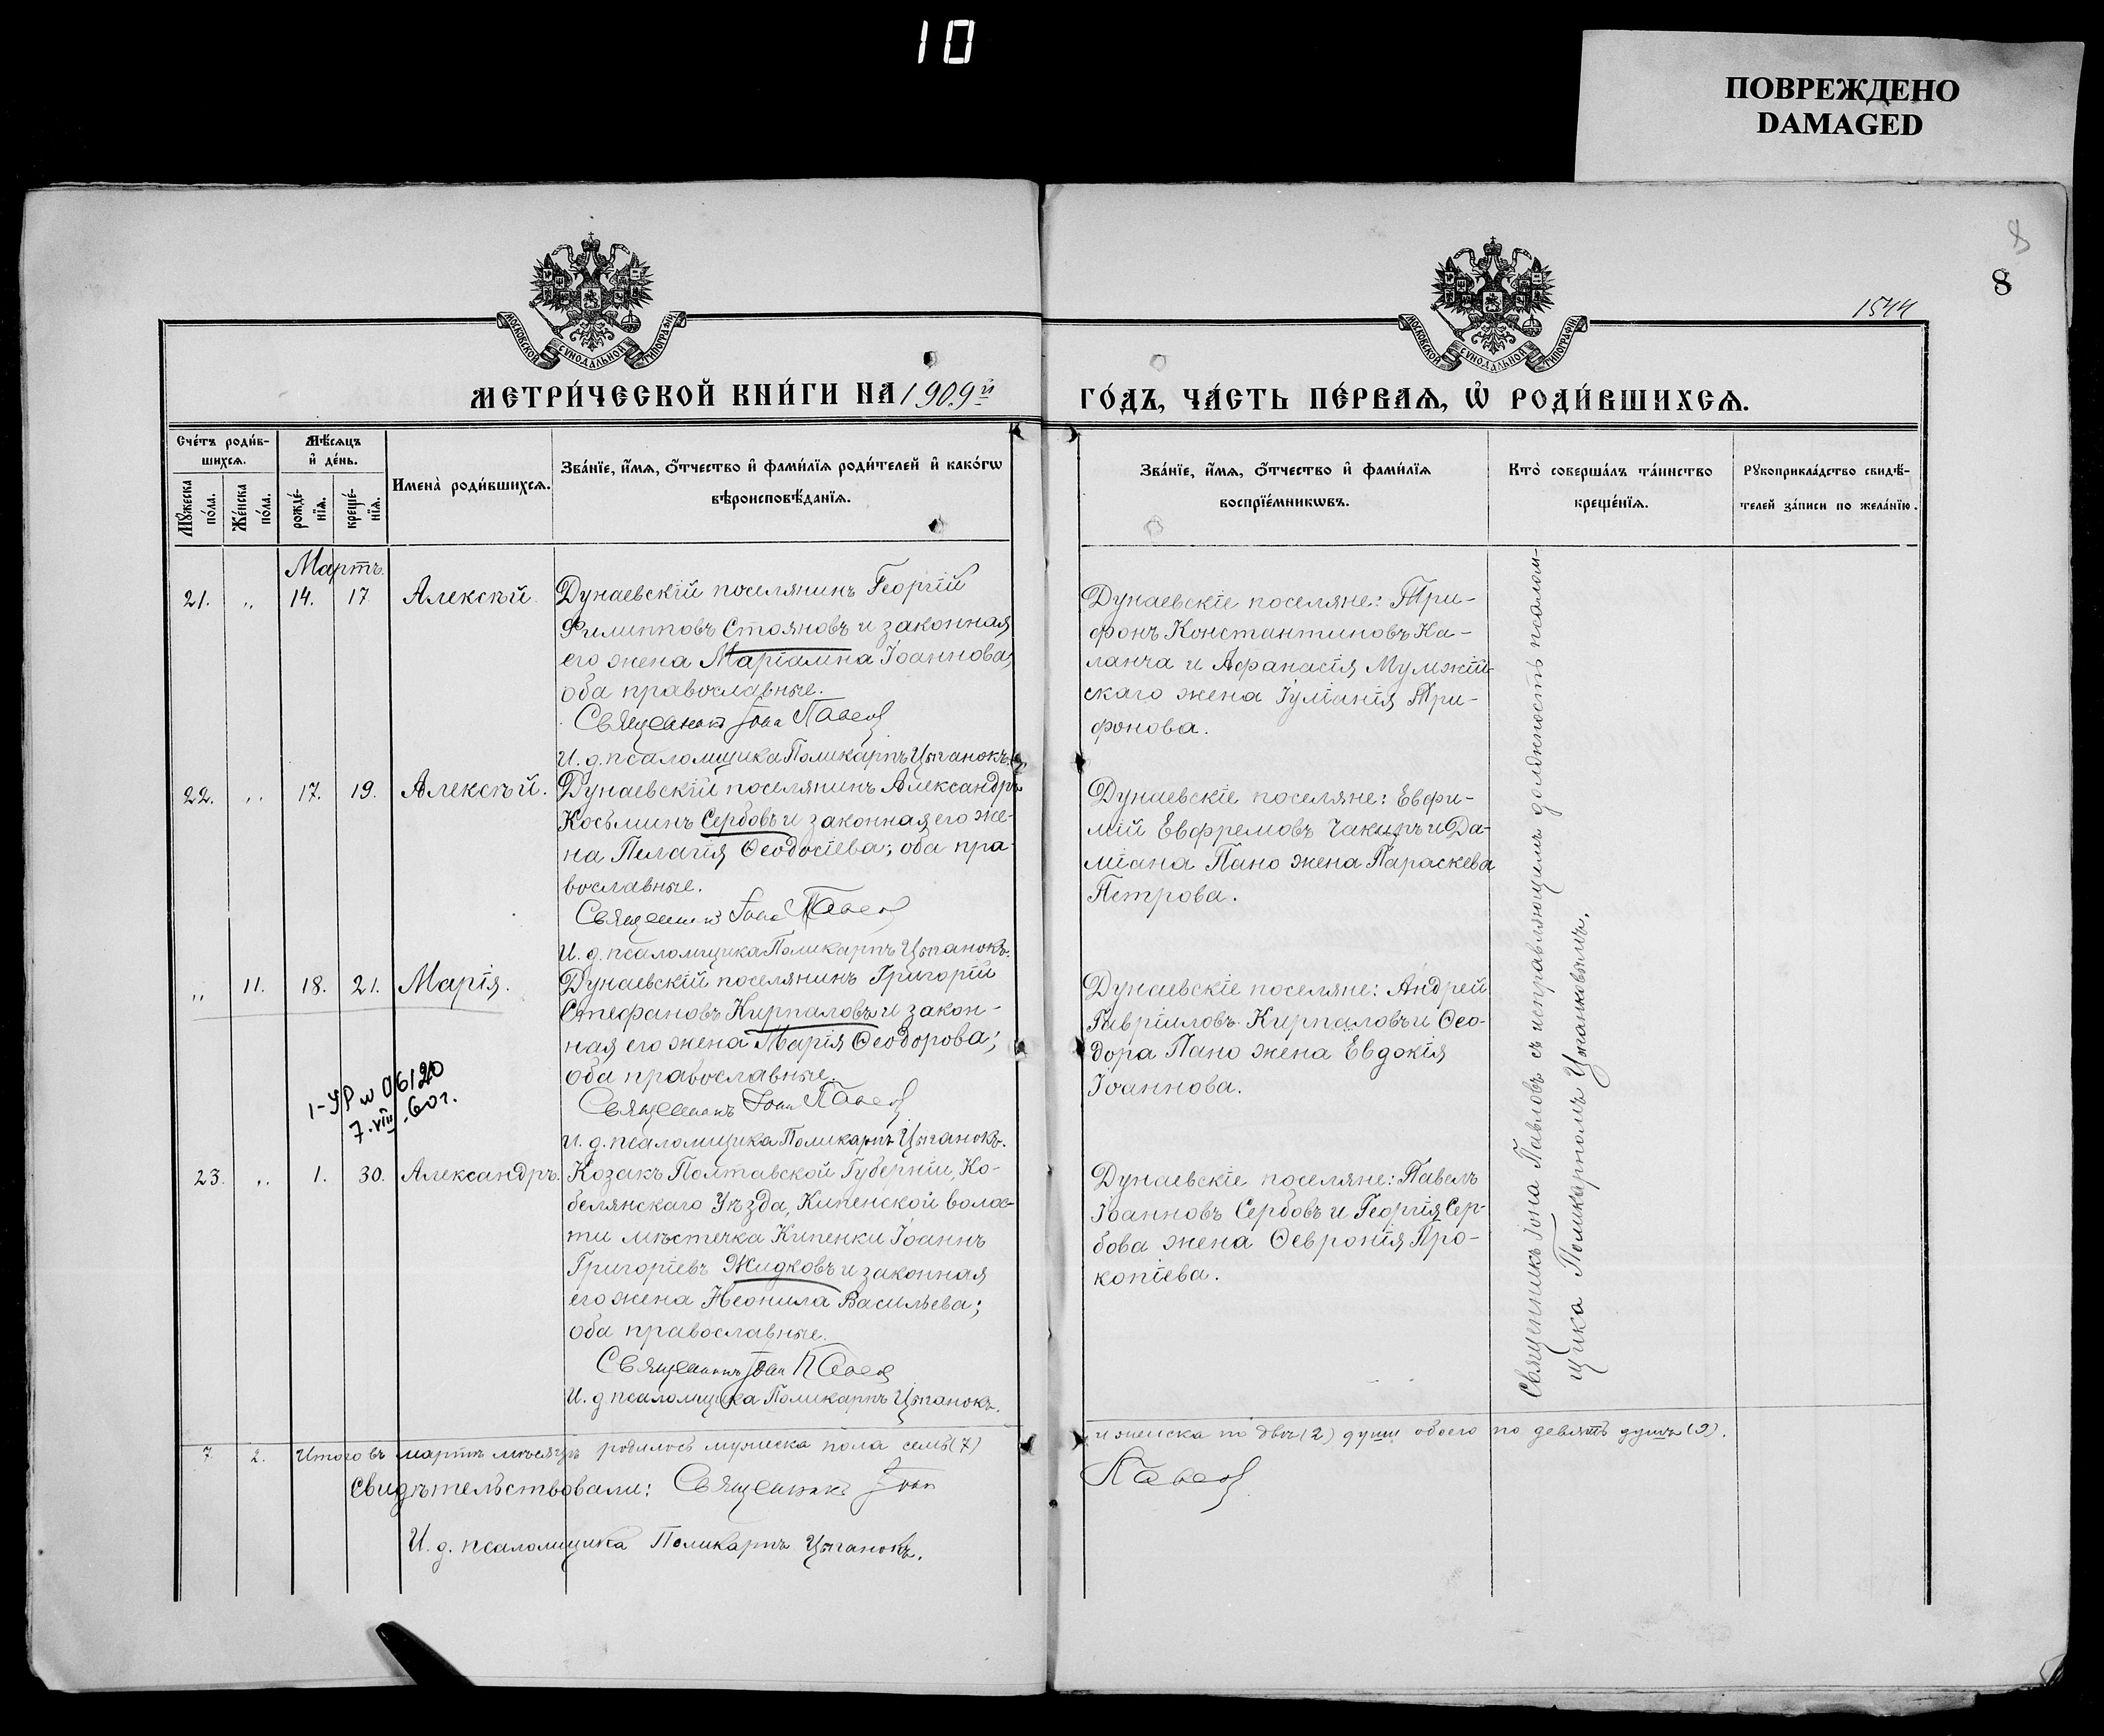 10
ПОВРЕЖДЕНО
DAMAGED
8
8
1544
МОСКОВСКОЙ СѴНОДАЛЬНОЙ ТИПОГРАФІИ
МОСКОВСКОЙ СѴНОДАЛЬНОЙ ТИПОГРАФІИ
МЕТРИ́ЧЕСКОЙ КНИ́ГИ НА 1909й
ГО́ДЪ, ЧА́СТЬ ПЕ́РВАѦ, Ѡ҆ РОДИ́ВШИХСѦ.
Сче́тъ роди́в-
шихсѧ.
Мꙋ́жеска по́ла.
Же́нска по́ла.
Мѣ́сѧцъ
и҆ де́нь.
рожде́-
нїѧ.
креще́-
нїѧ.
Имена̀ роди́вшихсѧ.
Зва́нїе, и҆́мѧ, ѻ҆́тчество и҆ фами́лїѧ роди́телей и҆ како́гѡ
вѣроисповѣ́данїѧ.
Зва́нїе, и҆́мѧ, ѻ҆́тчество и҆ фами́лїѧ
воспрїе́мникѡвъ.
Кто̀ соверша́лъ та́инство
креще́нїѧ.
Рꙋкоприкла́дство свидѣ́-
телей за́писи по жела́нїю.
Мартъ.
21. „ 14. 17 Алексѣй. Дунаевскій поселянинъ Георгій
Филипповъ Стояновъ и законная
его жена Маріамна Іоаннова,
оба православные.
Священникъ Іона Павлов
И. д. псаломщика Поликарпъ Цыганокъ.
Дунаевскіе поселяне: Три-
фонъ Константиновъ Ка-
ланча и Афанасія Мумжій-
скаго жена Іуліанія Три-
фонова.
22. „ 17. 19. Алексѣй. Дунаевскій поселянинъ Александръ
Косьминъ Сербовъ и законная его же-
на Пелагія Ѳеодосіева; оба пра-
вославные.
Священникъ Іона Павлов
И. д. псаломщика Поликарпъ Цыганокъ.
Дунаевскіе поселяне: Евфи-
мій Евфремовъ Чакиръ и Да-
міана Пано жена Параскева
Петрова.
„ 11. 18. 21. Марія. Дунаевскій поселянинъ Григорій
Стефановъ Кирпаловъ и закон-
ная его жена Марія Ѳеодорова;
оба православные.
Священникъ Іона Павлов
И. д. псаломщика Поликарпъ Цыганокъ.
Дунаевскіе поселяне: Андрей
Гавріиловъ Кирпаловъ и Ѳео-
дора Пано жена Евдокія
Іоаннова.
7.VIII.60г.
23. „ 1. 30. Александръ. Козакъ Полтавской Губерніи, Ко-
белянскаго Уѣзда, Кипенской волос-
ти мѣстечка Кипенки Іоаннъ
Григоріевъ Жидковъ и законная
его жена Неонила Васильева;
оба православные.
Священникъ Іона Павлов
И. д. псаломщика Поликарпъ Цыганокъ.
Дунаевскіе поселяне: Павелъ
Іоанновъ Сербовъ и Георгія Сер-
бова жена Ѳевронія Про-
копіева.
Священникъ Іона Павловъ съ исправляющимъ должность псалом-
щика Поликарпомъ Цыганковымъ.
7. 2. Итого въ мартѣ мѣсяцѣ родилось мужеска пола семь (7)
и женска по двѣ (2) души обоего по девять душъ (9).
Свидѣтельствовали: Священникъ Іоан
Павлов
И. д. псаломщика Поликарпъ Цыганокъ.